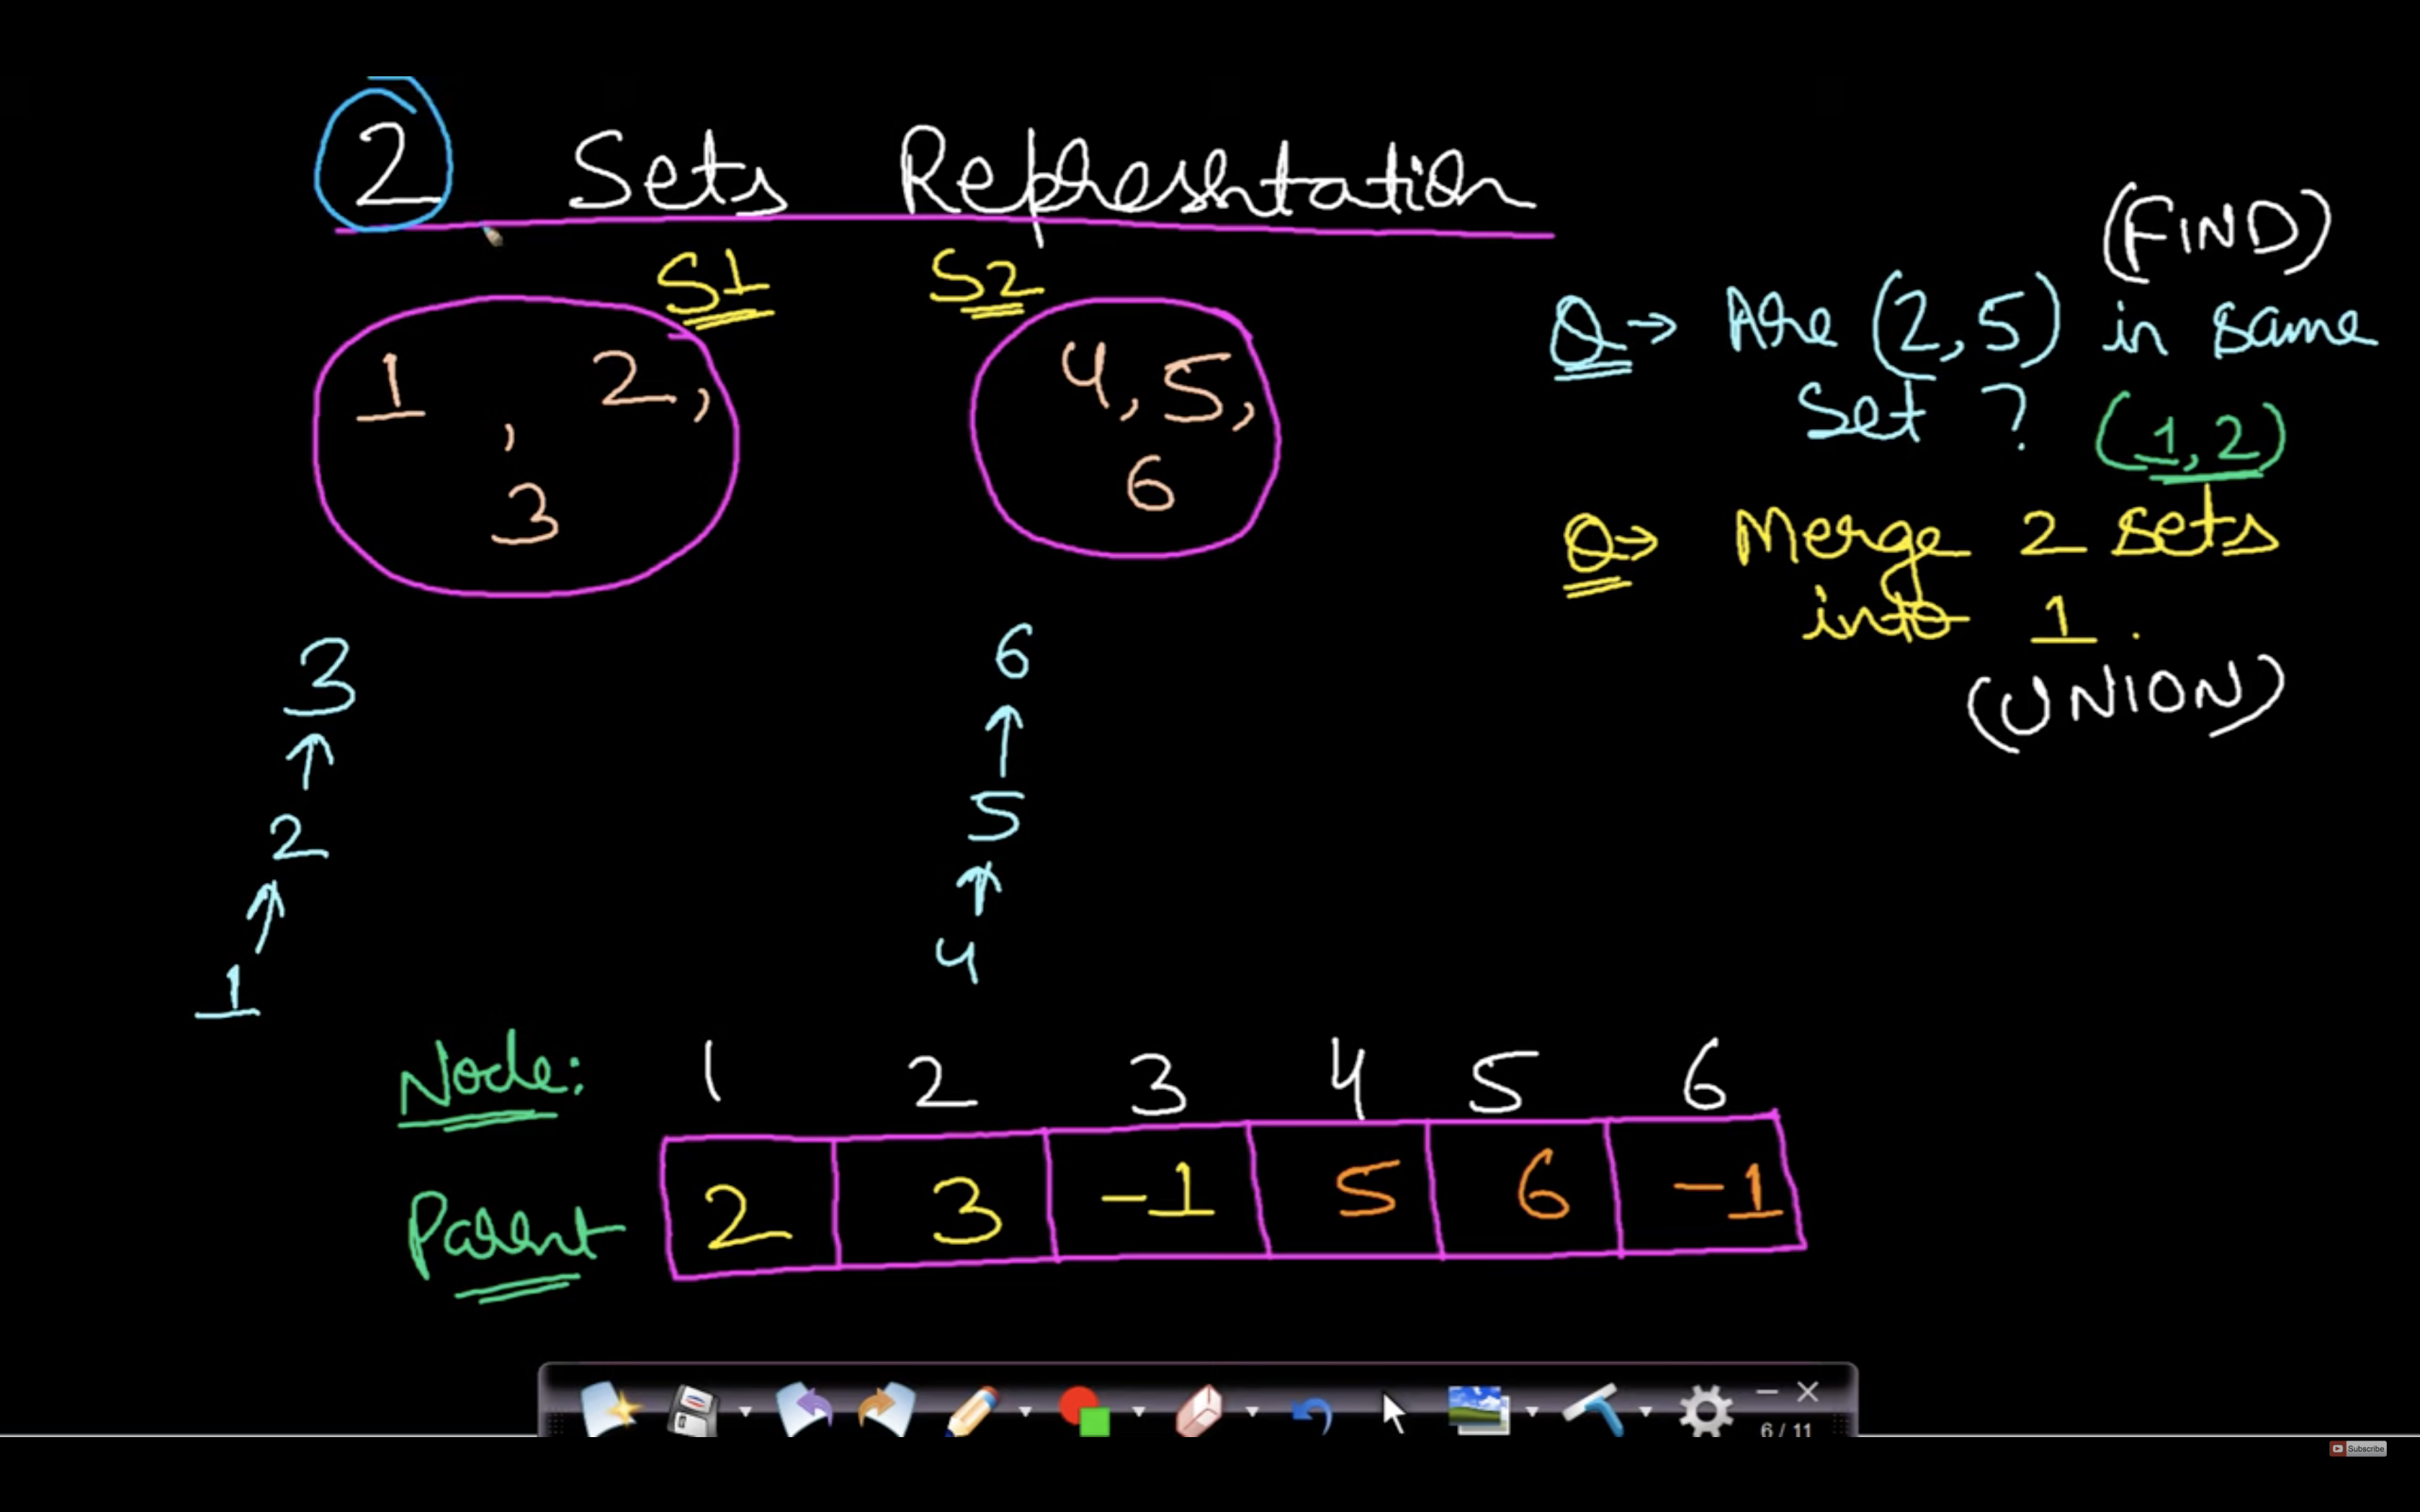 2 Sets Representation
(FIND)
S1 S2
Q→ Are (2,5) in same
Set ? (1,2)
1 , 2,
3
4, 5,
6
Q→ Merge 2 sets
into 1.
(UNION)
3
↑
2
↑
1
6
↑
5
↑
4
Node: 1 2 3 4 5 6
Parent 2 3 -1 5 6 -1
6 / 11
Subscribe